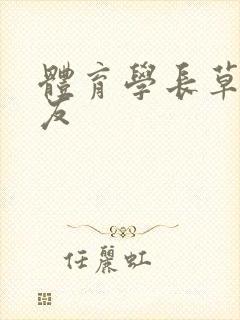 體育學長草
友
任麗虹